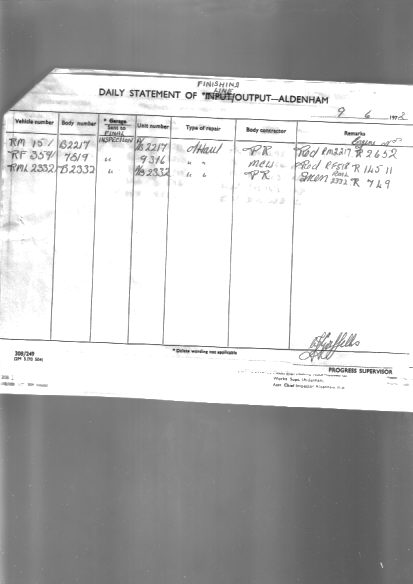 FINISHING
LINE
DAILY STATEMENT OF *INPUT/OUTPUT—ALDENHAM
9 6 1972
Vehicle number Body number * Garage Sent to FINAL INSPECTION Unit number Type of repair Body contractor Remarks Engine Nos
RM 151 B2217 " B2217 O/Haul PR Red RM2217 R 2652
RF 359 7619 " 9316 " " MCW Red RF518 R 14511
RML 2332 B2332 " B2332 " " PR Green RML 2332 R 749
* Delete wording not applicable
308/249
PROGRESS SUPERVISOR
Works Supt. Aldenham